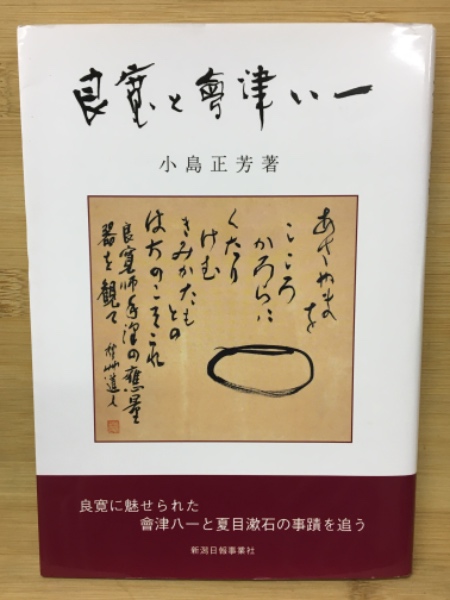 良寛と會津八一
小島正芳著
あさやまを
こころ
かろらに
くたり
けむ
きみかたも
との
はちのこそこれ
良寛師手澤の應量
器を観て 秋艸道人
良寛に魅せられた
會津八一と夏目漱石の事蹟を追う
新潟日報事業社